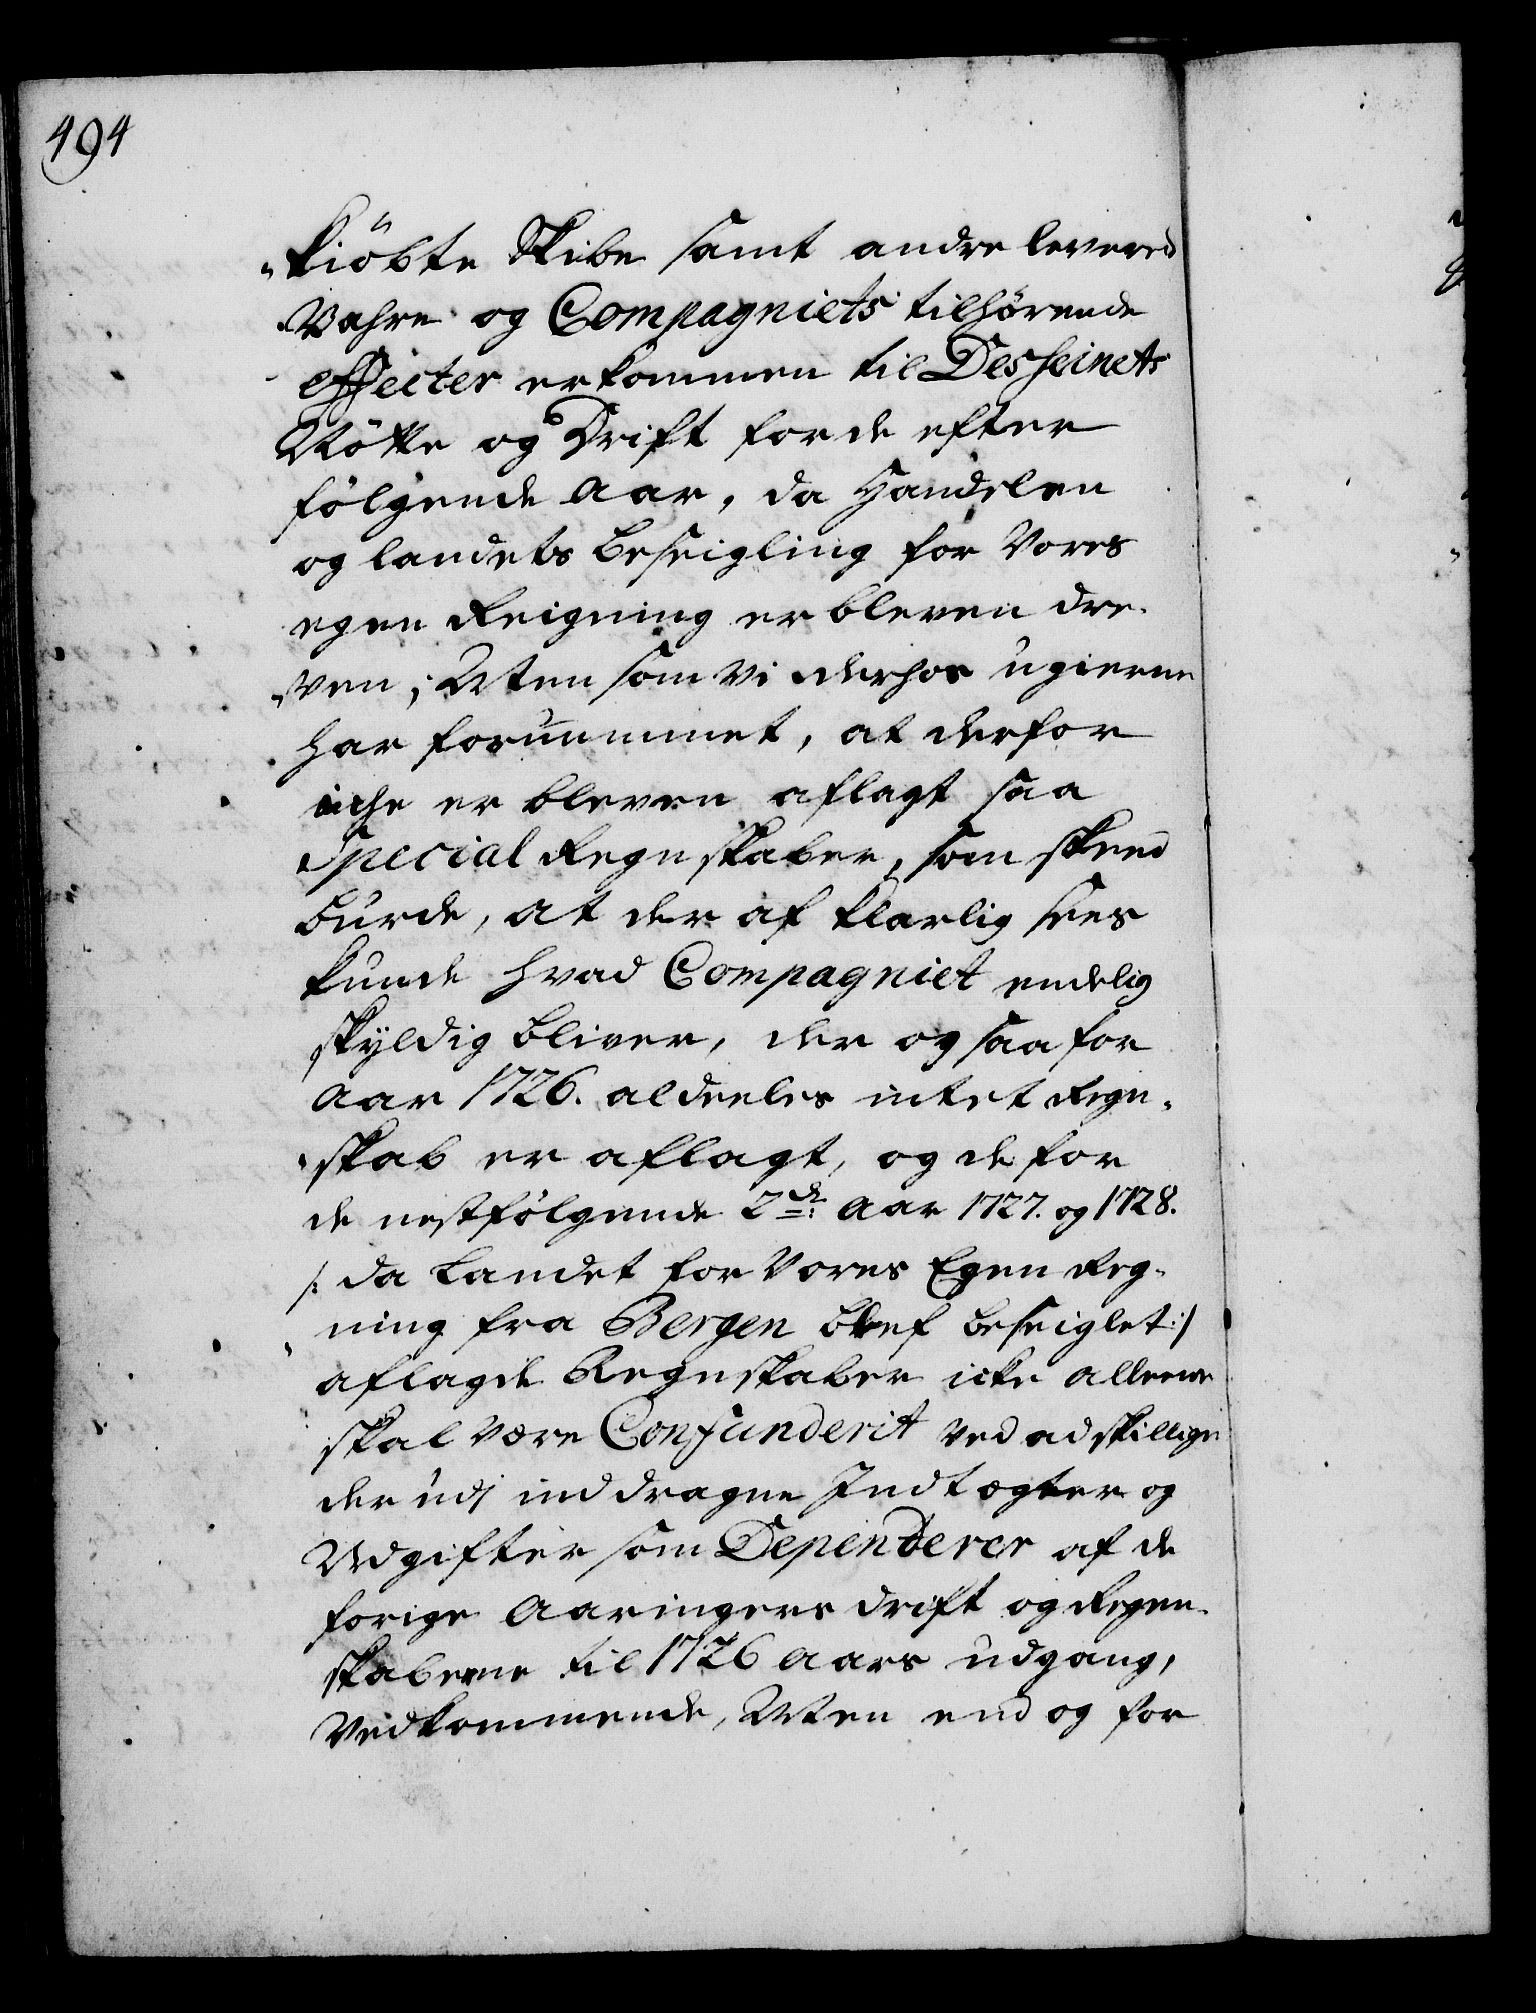 494
"kiöbte Skibe samt andre levered
Wahre og Compagniets tilhörende
effecter erkommen til Desseinets
Nötte og Drift for de efter
fölgende Aar, da Handelen
og landets Beseigling for Vores
egen Reigning er bleven dre-
"ven; Men som Vi derhos ugierne
har fornummet, at derfor
iche er bleven aflagt saa
Special Regnskaber, som skeed
burde, at der af klarlig sees
kunde hvad Compagniet endelig
skyldig bliver, der og saa for
Aar 1726. aldeeles intet Regn-
"skab er aflagt, og de for
de nestfölgende 2de: Aar 1727. og 1728.
/: da Landet for Vores Egen Reg-
"ning fra Bergen blef beseiglet :/
aflagde Regnskaber icke alleene
skal være Confunderit ved adskillige
der udj inddragne Indtægter og
Udgifter som Dependerer af de
forige Aaringers drift og Regen-
skaberne til 1726 Aars udgang,
Vedkommende, Men end og for